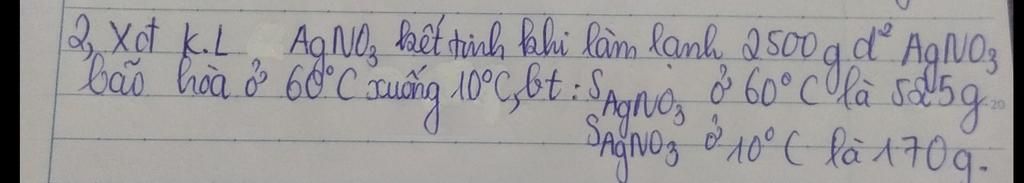 2, Xđ K.L AgNO3 kết tinh khi làm lạnh 2500g d² AgNO3
bão hoà ở 60°C xuống 10°C, bt: SAgNO3 ở 60°C là 525g.
SAgNO3 ở 10°C là 170g.